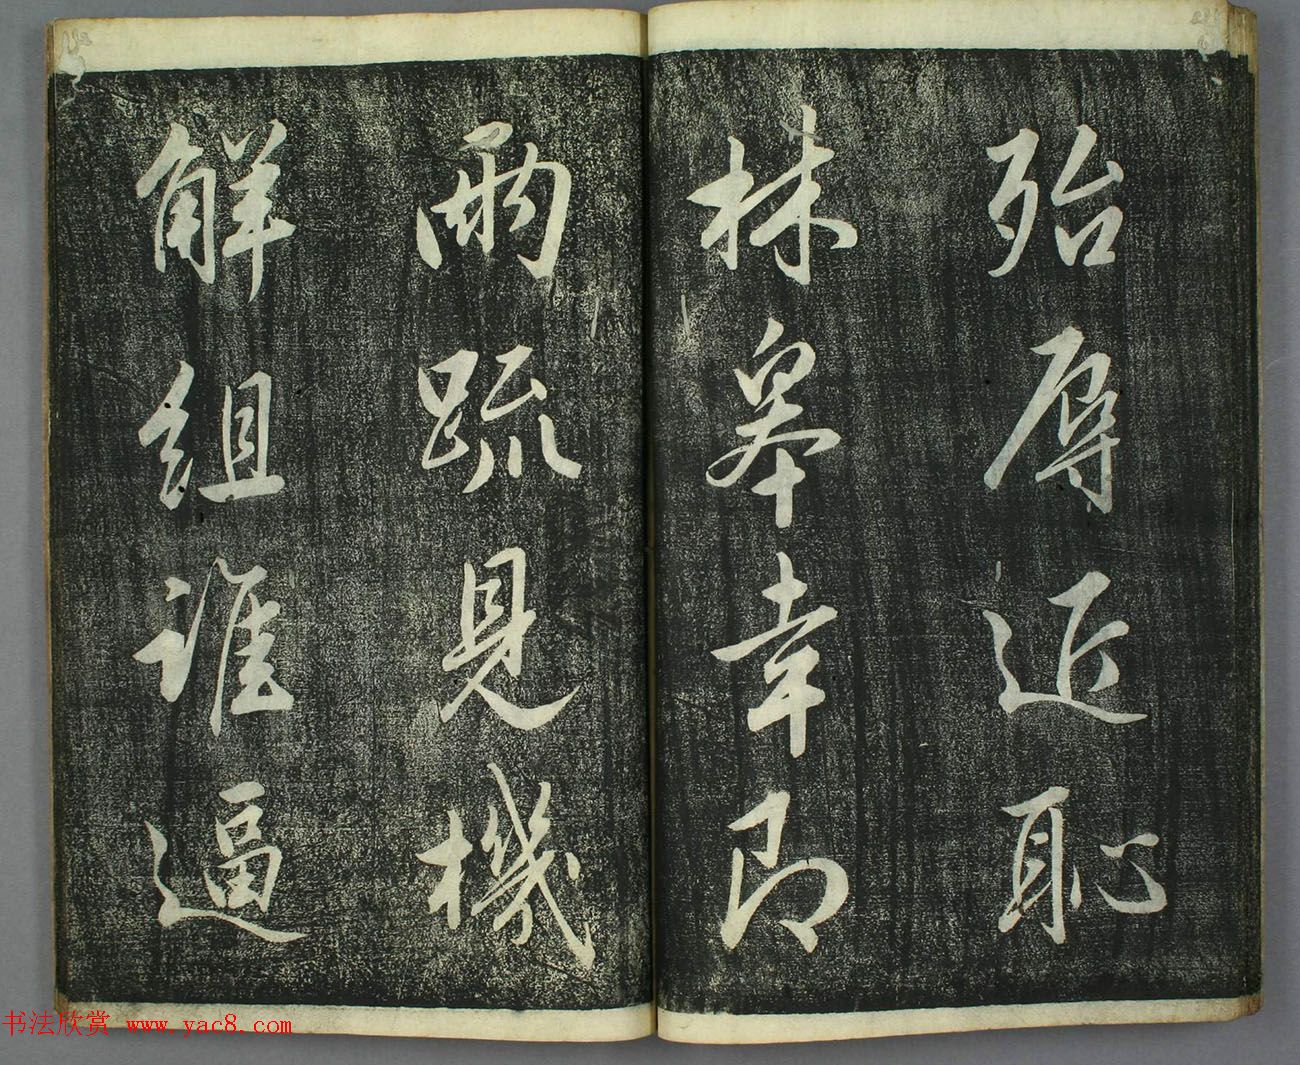 殆辱近恥
林皋幸即
兩疏見機
解組誰逼
书法欣赏 www.yac8.com